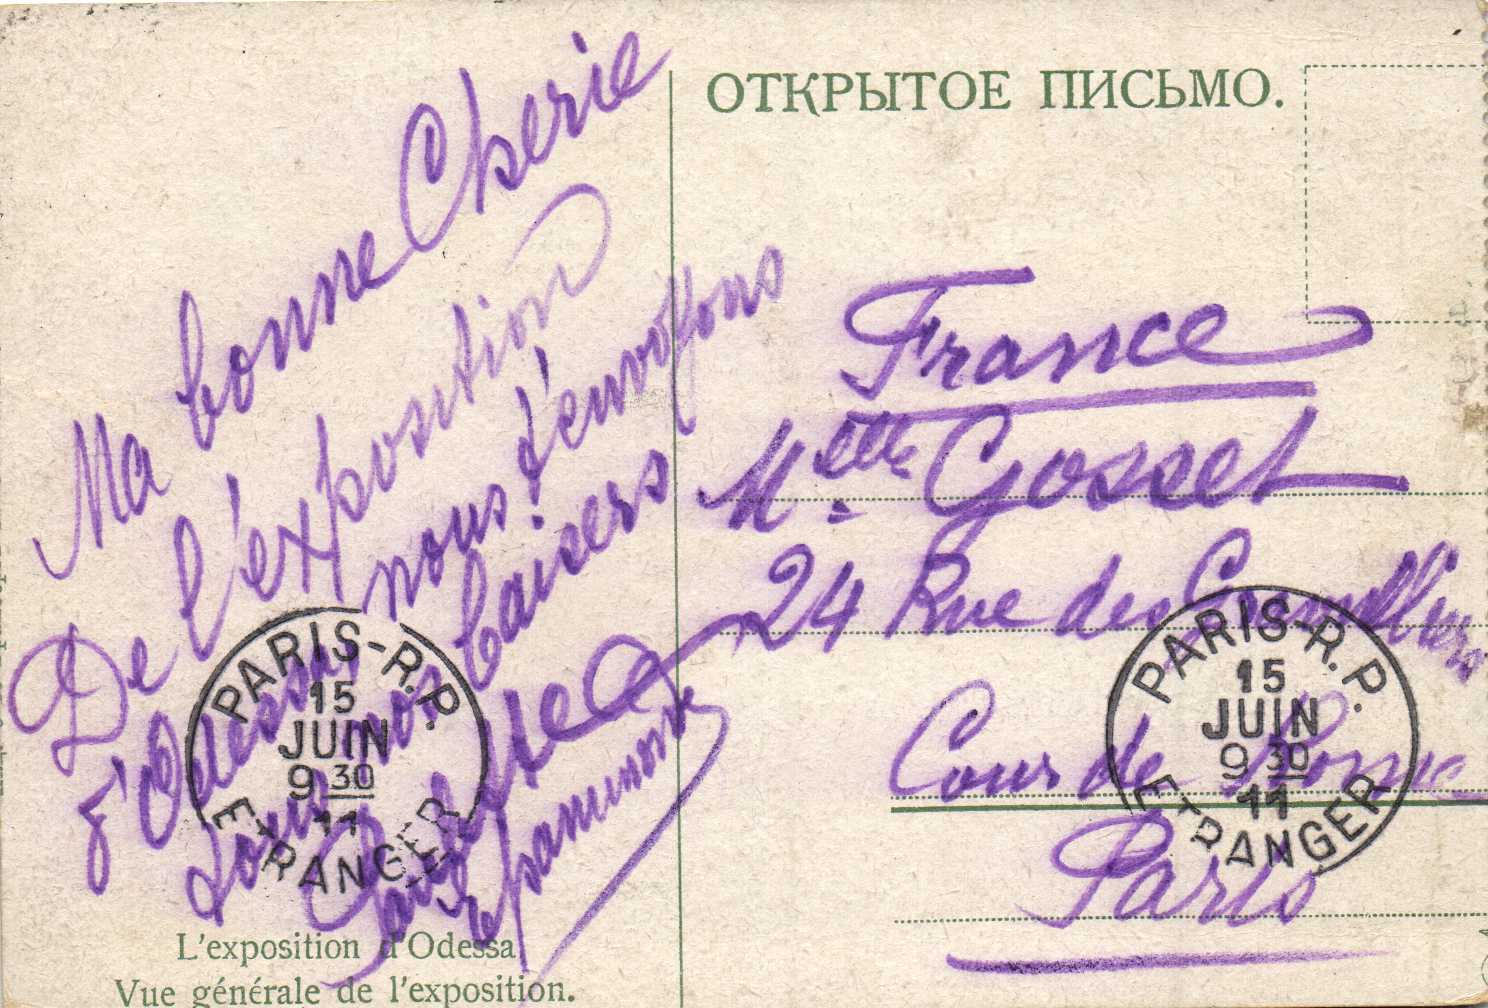 ОТКРЫТОЕ ПИСЬМО.
Ma bonne Cherie
De l'exposition
d'Odessa nous t'envoyons
tous nos baisers
France
Melle Gosset
24 Rue des Gravilliers
Cour de Rome
Paris
PARIS-R.P.
15
JUIN
9 30
11
ETRANGER
PARIS-R.P.
15
JUIN
9 30
11
ETRANGER
L'exposition d'Odessa
Vue générale de l'exposition.